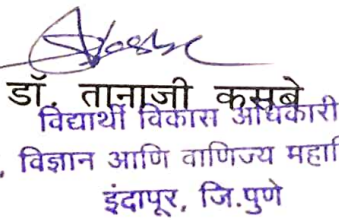 डॉ. तानाजी कसबे
विद्यार्थी विकास अधिकारी
, विज्ञान आणि वाणिज्य महावि
इंदापूर, जि.पुणे